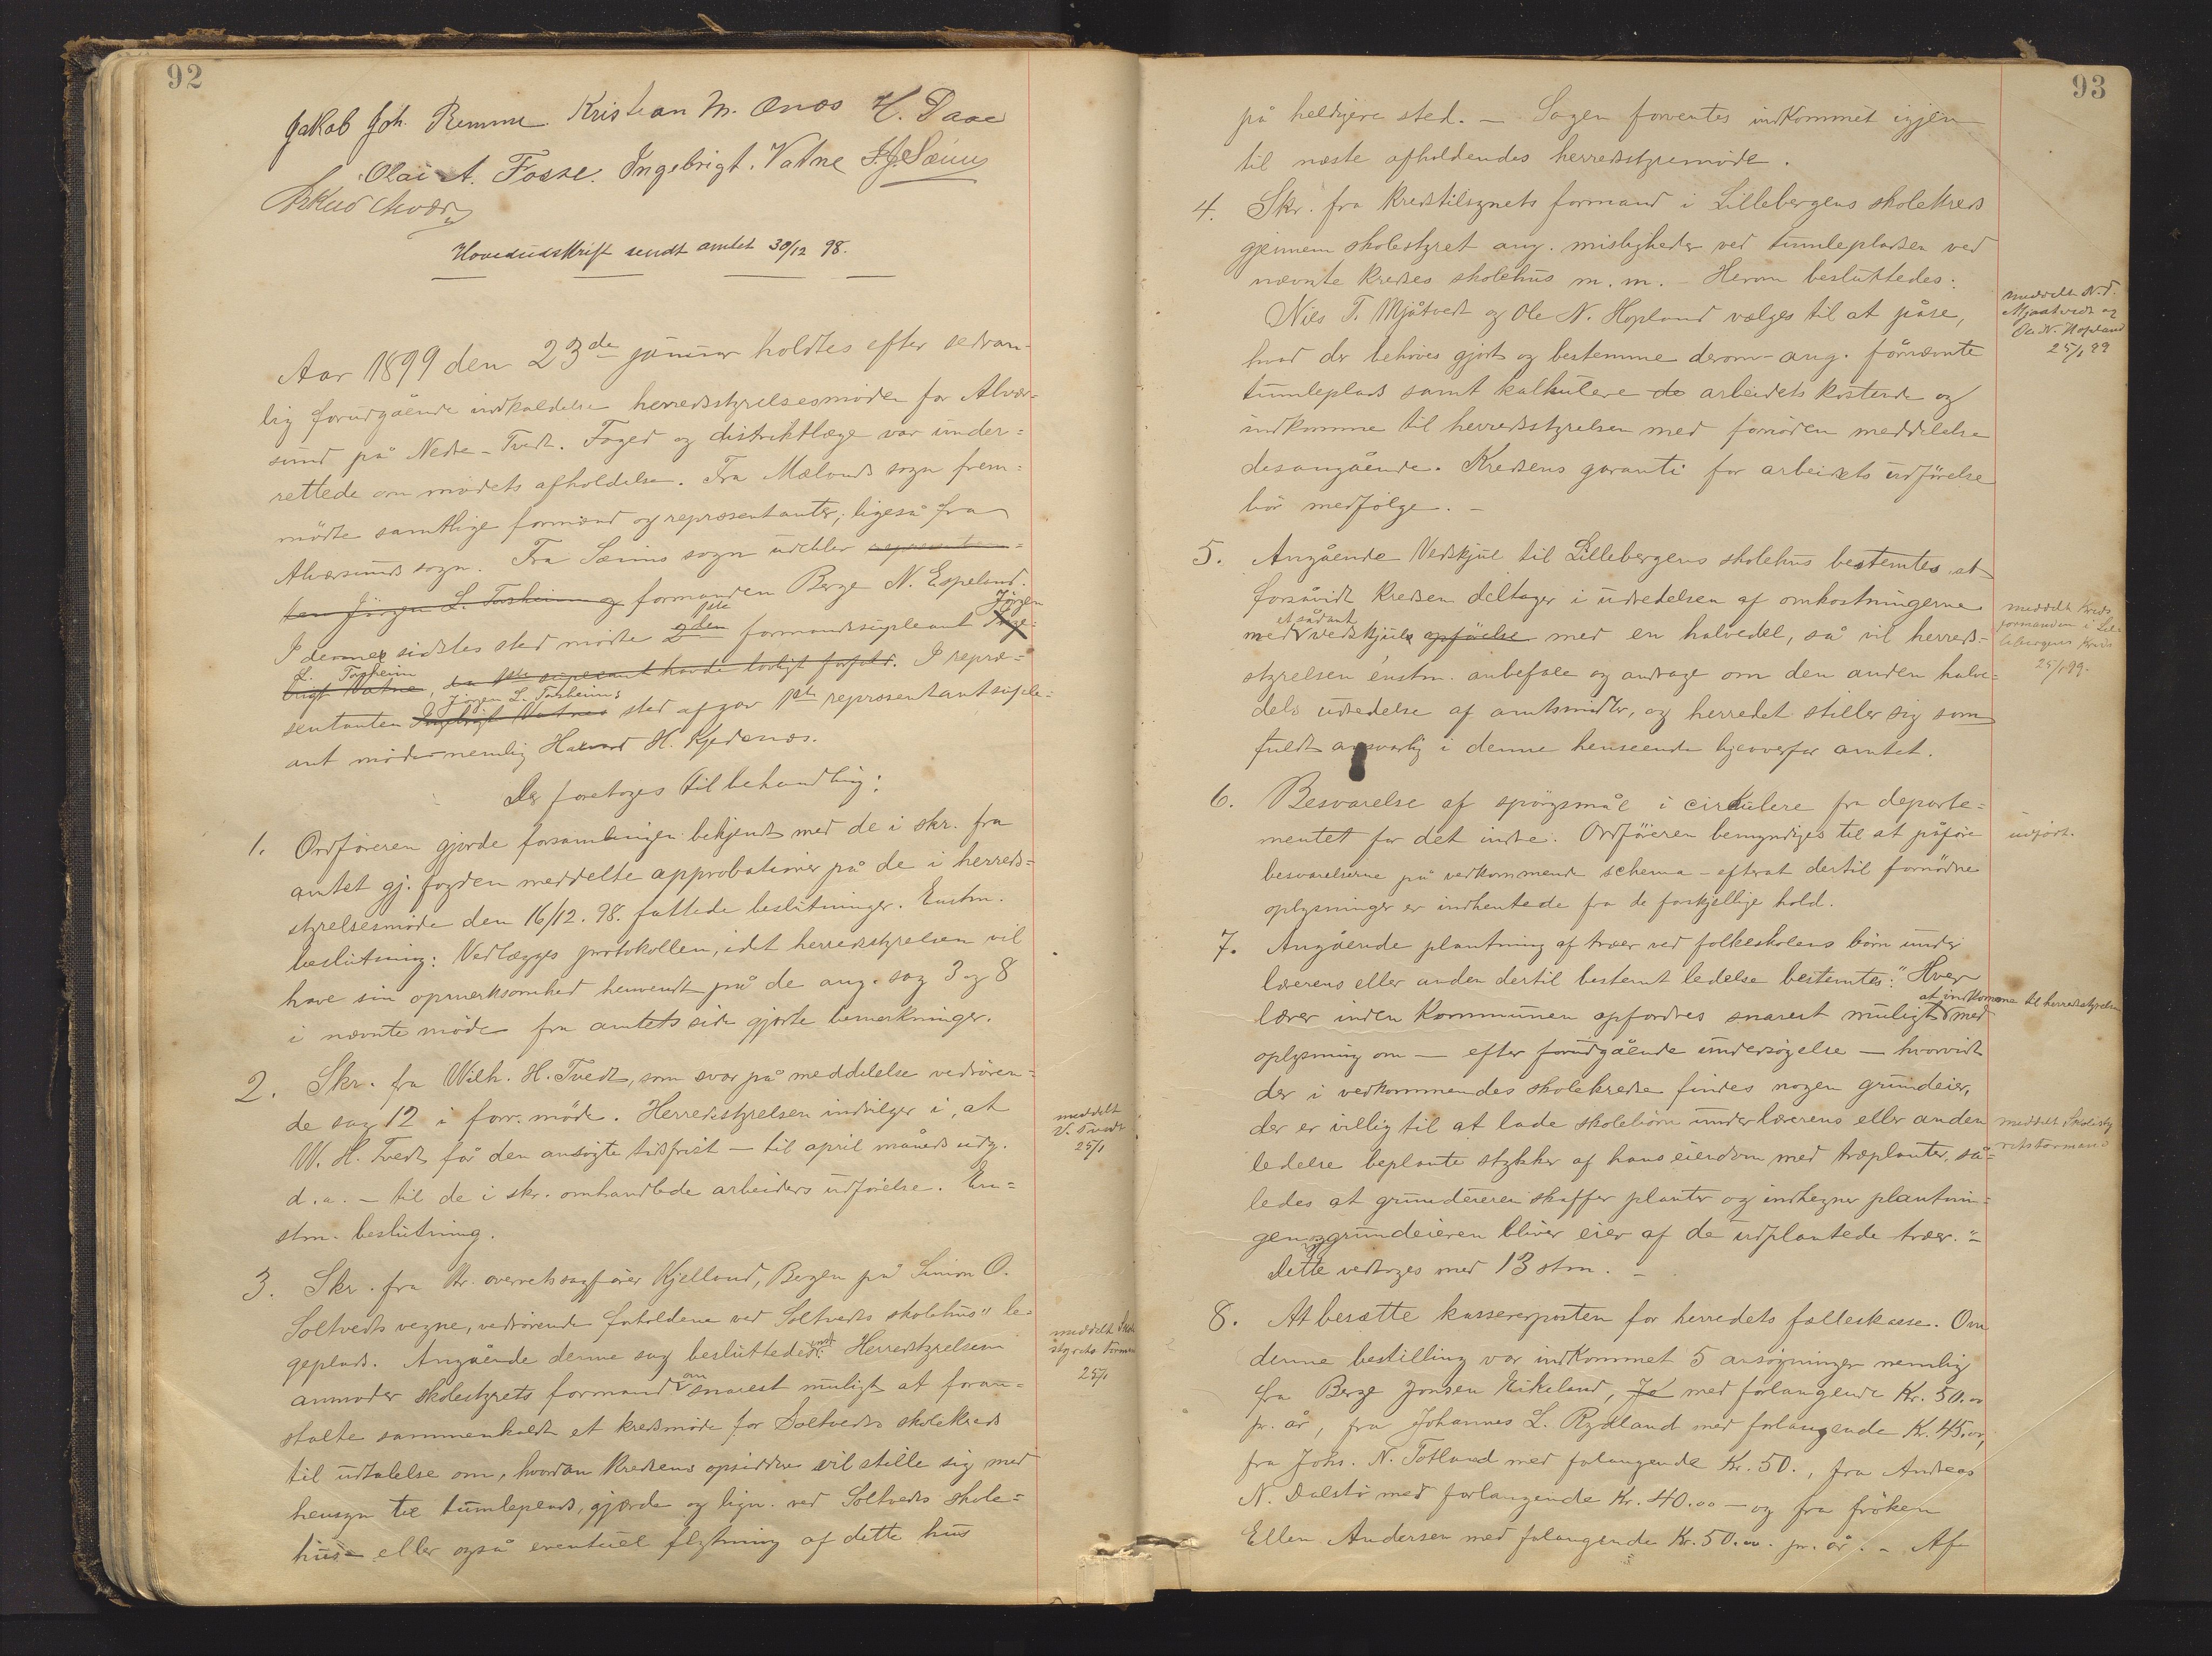 92
Jakob Joh. Remme Kristian M. Onøs H. Daae
Olai A. Fosse. Ingebrigt. Vatne
Hovedudskrift sendt amtet 30/12 98.
Aar 1899 den 23de januar holdtes efter sedvan-
lig forudgående indkaldelse herredsstyrelsesmøde for Alver-
sund på Nedre-Tvedt. Foged og distriktlæge var under-
rettede om mødets afholdelse. Fra Mælands sogn frem-
mødte samtlige formænd og repræsentanter; ligeså fra
Alversunds sogn. Fra Sæims sogn udebler represen tan-
ten Jörgen L. Torsheim og formanden Berge N. Espeland.
I dennes sidstes sted mødte 2den 1ste formandssupleant Inge- Jörgen
brigt Vatne L. Torsheim, da 1ste supleant havde lovligt forfald. I repræ-
sentanten Ingebrigt Vatnes Jörgen L. Torsheims sted afgav 1ste representantsuple-
ant møde nemlig Halvard H. Kjedenøs.
Der foretoges til behandling:
1. Ordføreren gjorde forsamlingen bekjendt med de i skr. fra
amtet gj. fogden meddelte approbationer på de i herreds-
styrelsesmøde den 16/12. 98. fattede beslutninger. Enstm.
beslutning: Vedlægges protokollen, idet herredsstyrelsen vil
have sin opmerksomhed henvendt på de ang. sag 3 og 8
i nævnte møde fra amtets side gjorte bemerkninger.
2. Skr. fra Wilh. H. Tvedt, som svar på meddelelse vedrøren-
de sag 12 i forr. møde. Herredsstyrelsen indvilger i, at
W. H. Tvedt får den ansøgte tidsfrist — til april måneds udg.
d. a. — til de i skr. omhandlede arbeiders udførelse. En-
stm. beslutning.
meddelt
V. Tvedt
25/1
3. Skr. fra Hr. overretssagfører Kjelland, Bergen på Simon O.
Soltvedts vegne, vedrørende forholdene ved Soltvedts skolehus" le-
geplads. Angående denne sag besluttedes enst: Herredsstyrelsen
anmoder skolestyrets formand om snarest muligt at foran-
stalte sammenkaldt et kredsmøde for Soltvedts skolekreds
til udtalelse om, hvordan kredsens opsiddere vil stille sig med
hensyn til tumleplads, gjærde og lign. ved Soltvedts skole-
hus — eller også eventuel flytning af dette hus
meddelt Skole
styrets Forman
25/1
93
på heldigere sted. — Sagen forventes indkommet igjen
til næste afholdendes herredsstyremøde.
4. Skr. fra kredstilsynets formand i Lillebergens skolekreds
gjennem skolestyret ang. misligheder ved tumlepladsen ved
nævnte kredses skolehus m. m. — Herom besluttedes:
Nils T. Mjåtvedt og Ole N. Hopland vælges til at påse,
hvad der behöves gjort og bestemme derom ang. fornævnte
tumleplads samt kalkulere de arbeidets kostende og
indkomme til herredsstyrelsen med fornöden meddelelse
desangående. Kredsens garanti for arbeidets udförelse
bör medfölge. —
meddelt N. T.
Mjaatvedt og
Ole N. Hopland
25/1 99
5. Angående Vedskjul til Lillebergens skolehus bestemtes, at
forsåvidt kredsen deltager i udredelsen af omkostningerne
med et sådant vedskjuls opförelse med en halvedel, så vil herreds-
styrelsen énstm. anbefale og andrage om den anden halve-
dels udredelse af amtsmidler, og herredet stiller sig som
fuldt ansvarlig i denne henseende ligeoverfor amtet.
meddelt Kreds
formanden i Lil-
lebergens Kreds
25/1 99.
6. Besvarelse af spörgsmål i cirkulere fra departe-
mentet for det indre. Ordföreren bemyndiges til at påföre
besvarelserne på vedkommende schema — efterat dertil fornödne
oplysninger er indhentede fra de forskjellige hold.
udfört.
7. Angående plantning af træer ved folkeskolens börn under
lærerens eller anden dertil bestemt ledelse bestemtes: "Hver
lærer inden kommunen opfordres snarest muligt at indkomme til herredsstyrelsen med
oplysning om — efter forudgående undersögelse — hvorvidt
der i vedkommendes skolekreds findes nogen grundeier,
der er villig til at lade skolebörn under lærerens eller anden
ledelse beplante stykker af hans eiendom med træplanter, så-
ledes at grundeieren skaffer planter og indhegner plantnin-
gen og grundeieren bliver eier af de udplantede træer."
Dette vedtoges med 13 stm. —
meddelt Skolesty
rets formand
8. At besætte kassererposten for herredets fælleskasse. Om
denne bestilling var indkommet 5 ansögninger nemlig
fra Berge Jonsen Eikeland, Jo med forlangende Kr. 50.00
pr. år, fra Johannes L. Rydland med forlangende Kr. 45.00,
fra Johs. N. Totland med forlangende Kr. 50., fra Andreas
N. Dalstö med forlangende Kr. 40.00 — og fra fröken
Ellen Andersen med forlangende Kr. 50.00. pr. år. — Af